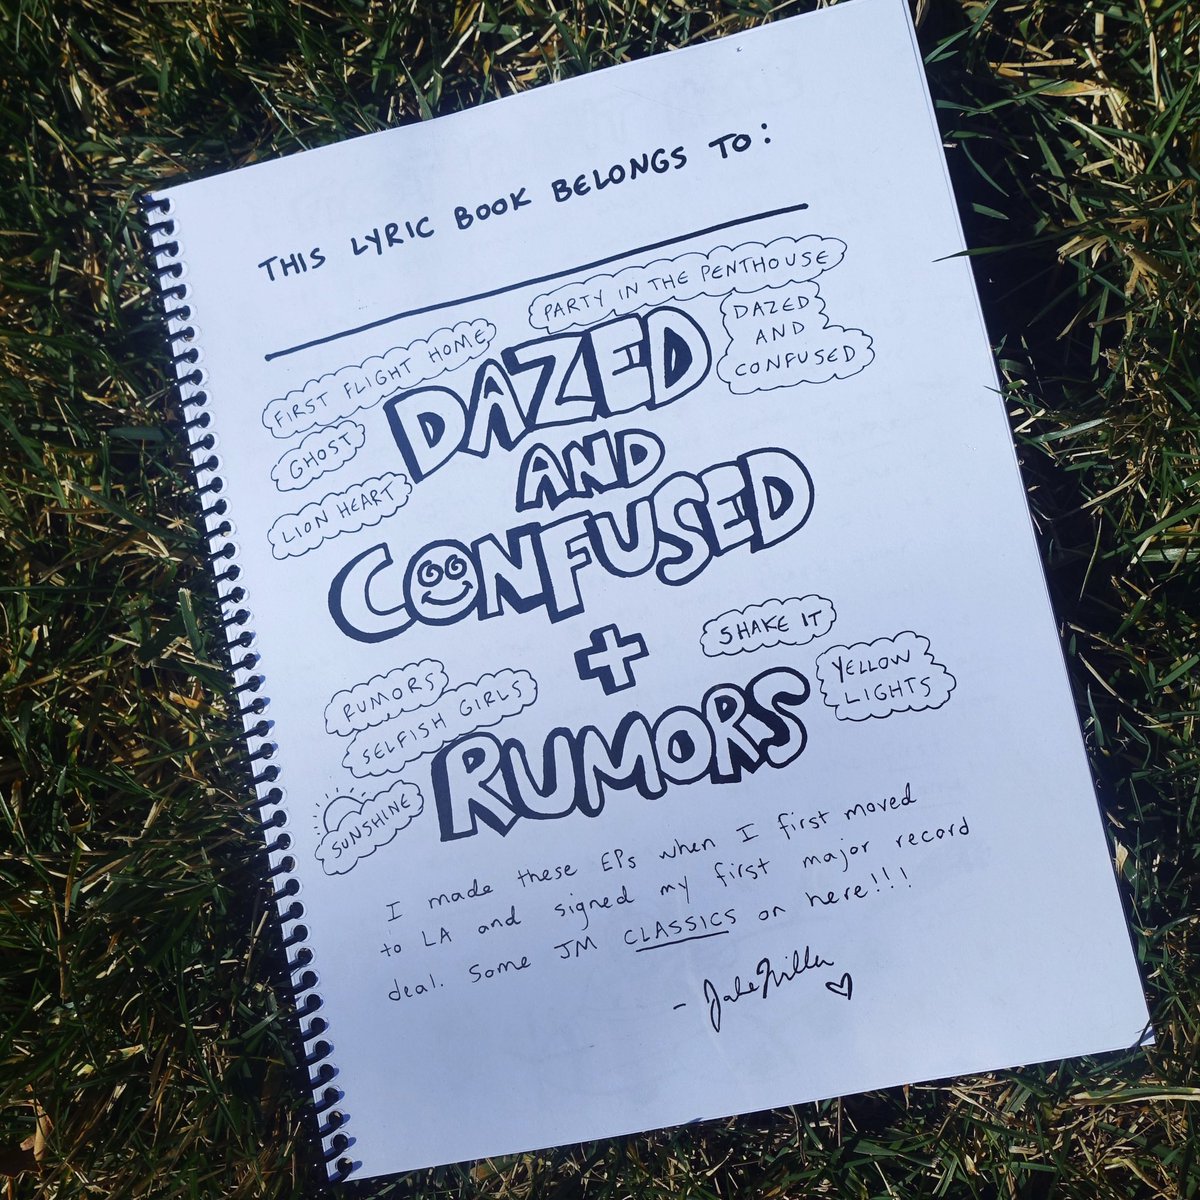 THIS LYRIC BOOK BELONGS TO:
PARTY IN THE PENTHOUSE
FIRST FLIGHT HOME
DAZED
AND
CONFUSED
GHOST
LION HEART
DAZED
AND
CONFUSED
+
RUMORS
SHAKE IT
RUMORS
SELFISH GIRLS
YELLOW
LIGHTS
SUNSHINE
I made these EPs when I first moved
to LA and signed my first major record
deal. Some JM CLASSICS on here!!!
- Jake Miller